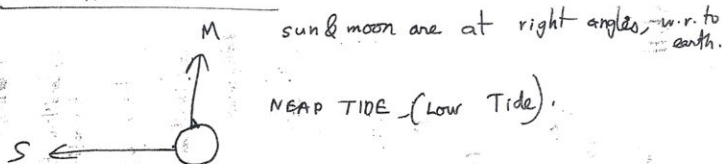 M
sun & moon are at right angles, w.r. to
earth.
NEAP TIDE - (Low Tide).
S